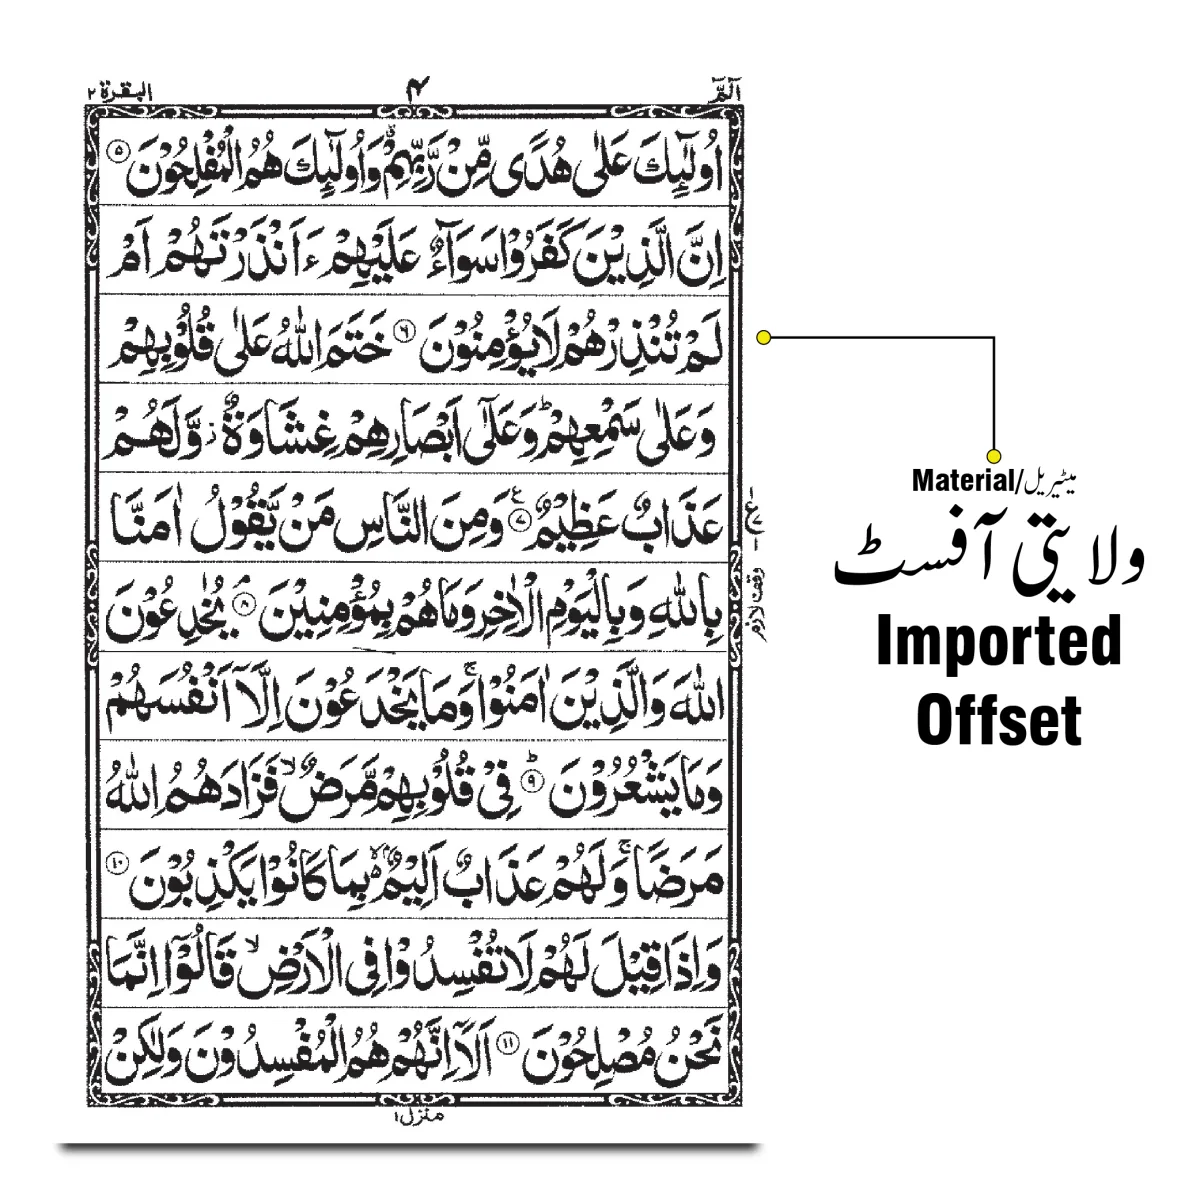 الٓمّٓ ۴ البقرة ٢
اُولٰٓئِكَ عَلٰى هُدًى مِّنْ رَّبِّهِمْ ۙ وَاُولٰٓئِكَ هُمُ الْمُفْلِحُوْنَ ۵
اِنَّ الَّذِيْنَ كَفَرُوْا سَوَآءٌ عَلَيْهِمْ ءَاَنْذَرْتَهُمْ اَمْ
لَمْ تُنْذِرْهُمْ لَا يُؤْمِنُوْنَ ۶ خَتَمَ اللّٰهُ عَلٰى قُلُوْبِهِمْ
وَعَلٰى سَمْعِهِمْ ؕ وَعَلٰٓى اَبْصَارِهِمْ غِشَاوَةٌ ز وَّلَهُمْ
عَذَابٌ عَظِيْمٌ ۷ ع وَمِنَ النَّاسِ مَنْ يَّقُوْلُ اٰمَنَّا
بِاللّٰهِ وَبِالْيَوْمِ الْاٰخِرِ وَمَا هُمْ بِمُؤْمِنِيْنَ ۘ ۸ يُخٰدِعُوْنَ
اللّٰهَ وَالَّذِيْنَ اٰمَنُوْا ۚ وَمَا يَخْدَعُوْنَ اِلَّآ اَنْفُسَهُمْ
وَمَا يَشْعُرُوْنَ ؕ ۹ فِىْ قُلُوْبِهِمْ مَّرَضٌ ۙ فَزَادَهُمُ اللّٰهُ
مَرَضًا ۚ وَلَهُمْ عَذَابٌ اَلِيْمٌۢ ۙ بِمَا كَانُوْا يَكْذِبُوْنَ ۱۰
وَاِذَا قِيْلَ لَهُمْ لَا تُفْسِدُوْا فِى الْاَرْضِ ۙ قَالُوْٓا اِنَّمَا
نَحْنُ مُصْلِحُوْنَ ۱۱ اَلَآ اِنَّهُمْ هُمُ الْمُفْسِدُوْنَ وَلٰكِنْ
منزل ۱
وقف لازم
Material/میٹیریل
ولایتی آفسٹ
Imported
Offset